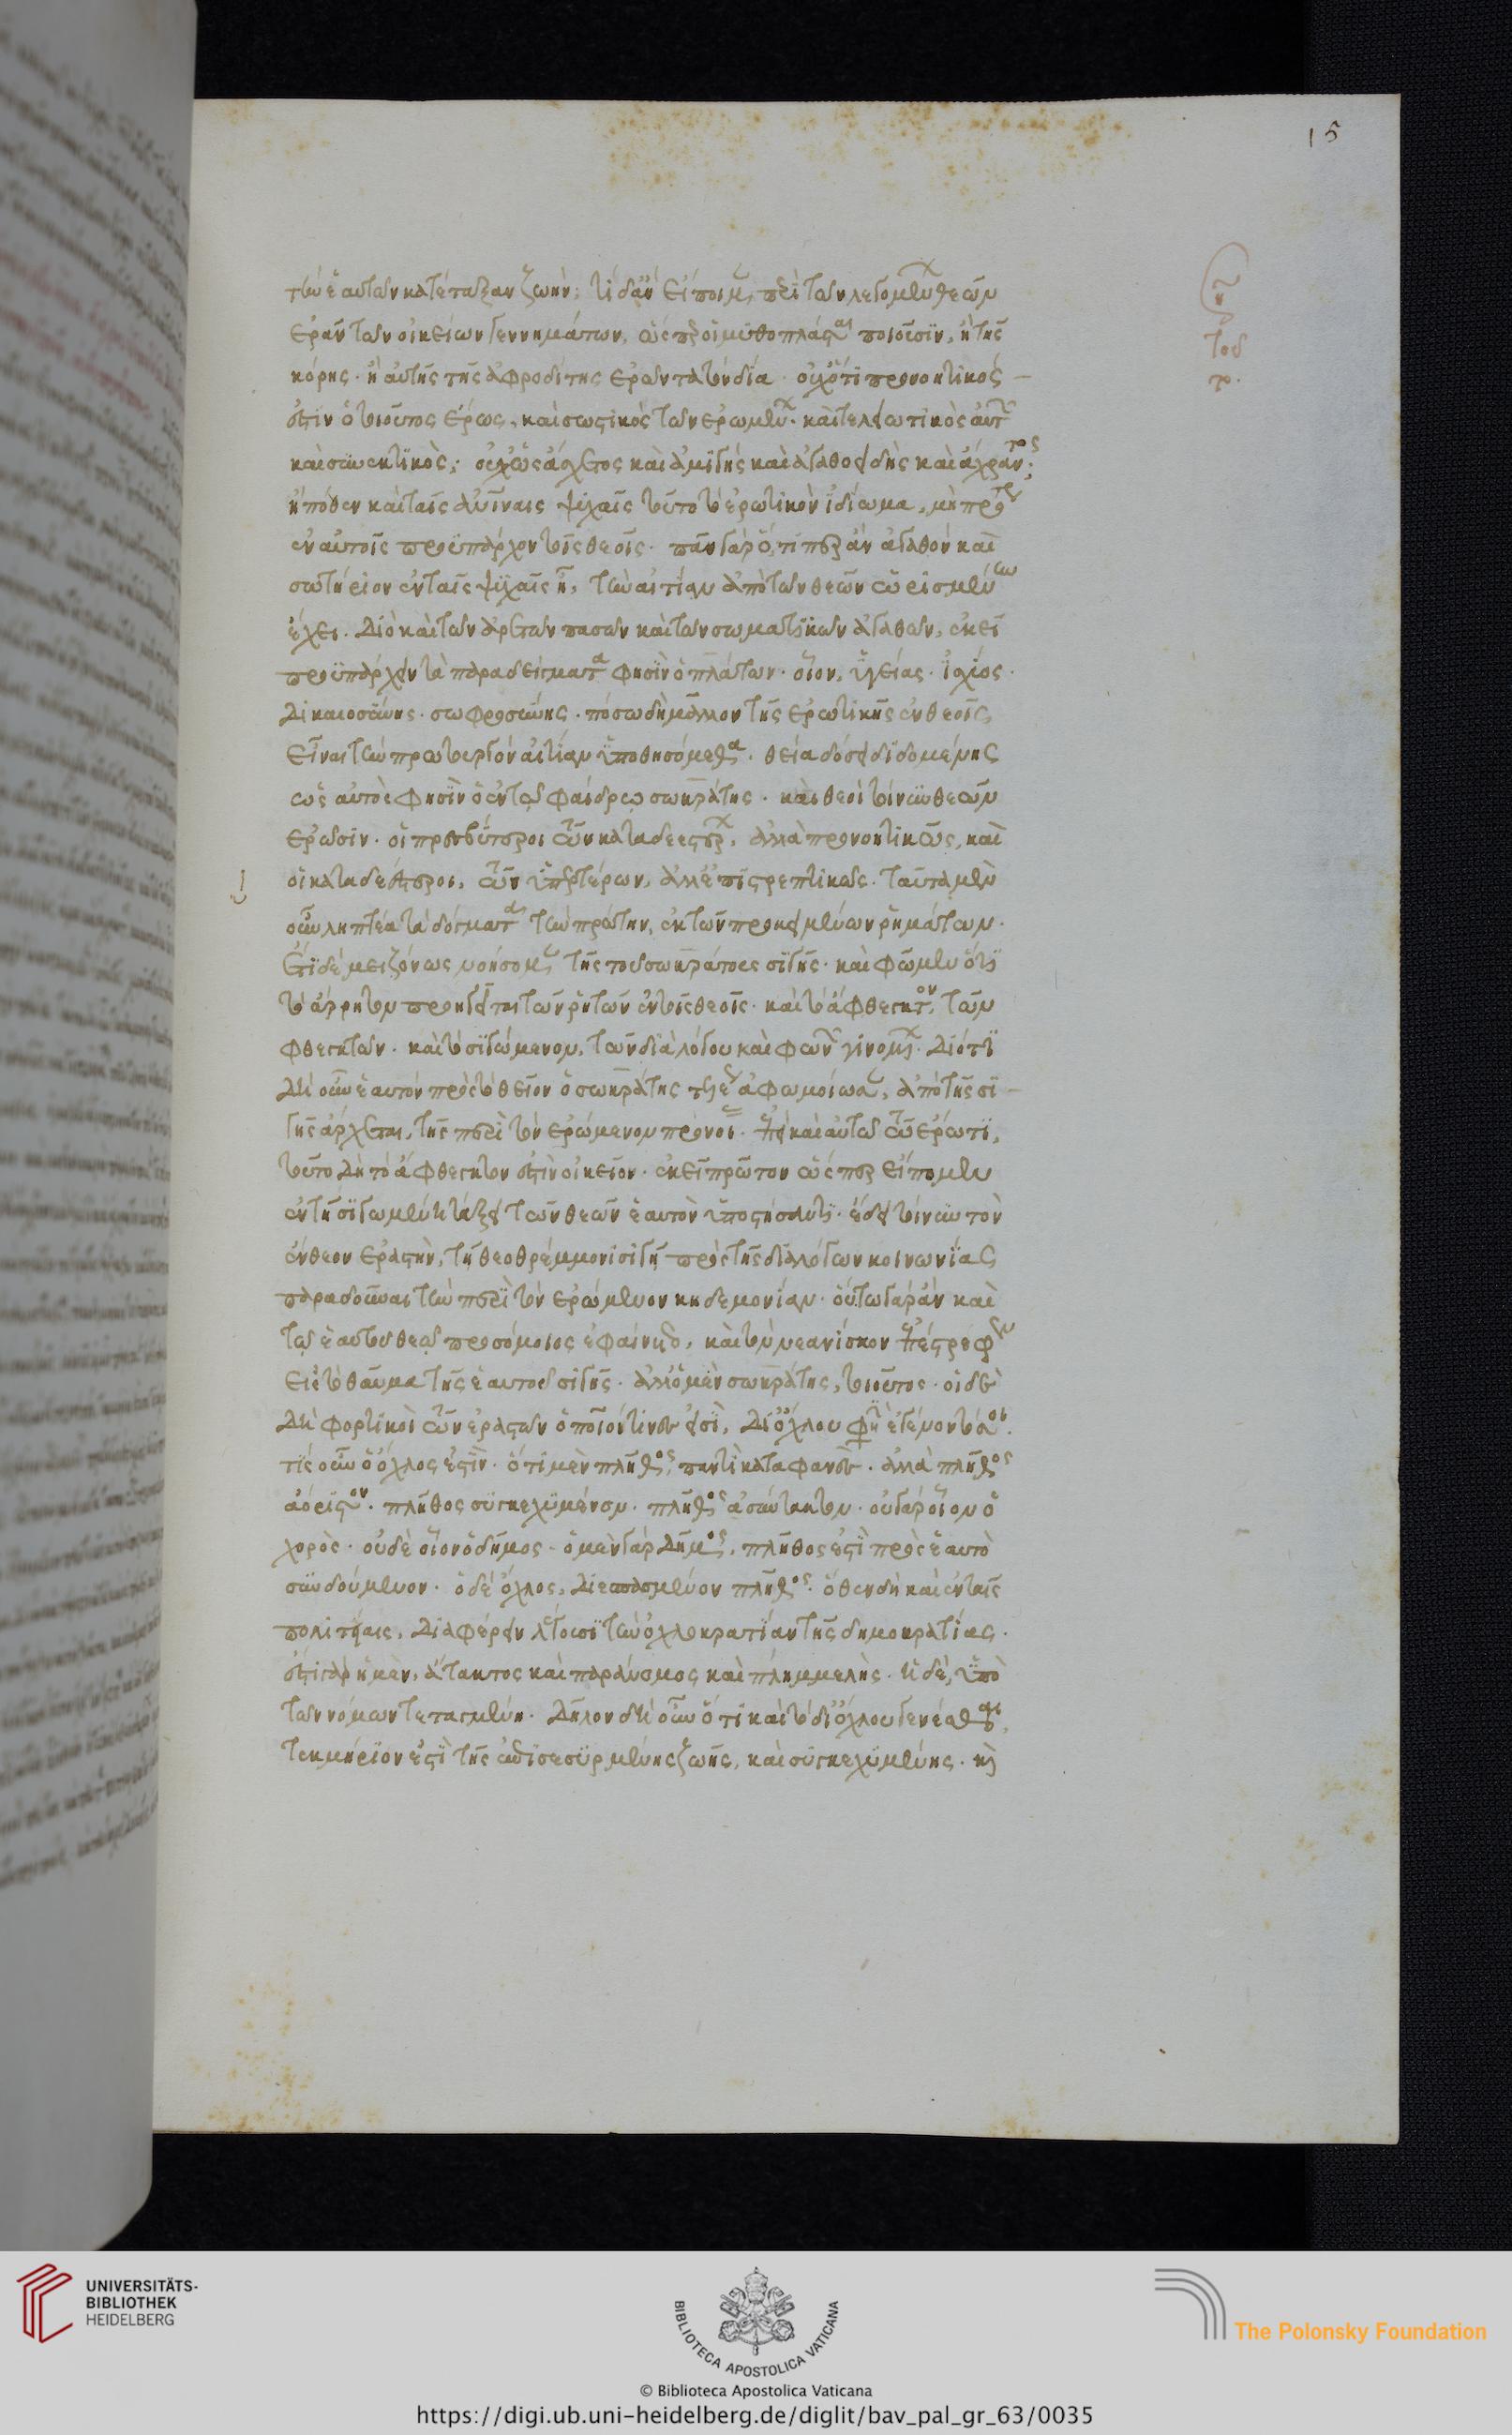 15
τὴν ἑαυτῶν κατέταξαν ζωήν; τί δ' ἂν εἴποιμεν περὶ τῶν λεγομένων θεῶν
ἐρᾶν τῶν οἰκείων γεννημάτων, ὥσπερ οἱ μυθοπλάσται ποιοῦσιν, ἢ τῆς
κόρης. ἢ αὐτῆς τῆς ἀφροδίτης ἐρῶντα τὸν δία. οὐχ ὅτι προνοητικός
ἐστιν ὁ τοιοῦτος ἔρως, καὶ σωστικὸς τῶν ἐρωμένων. καὶ τελειωτικὸς αὐτῶν
καὶ συνεκτικός; οὐχ ὡς ἄσχετος καὶ ἀμιγὴς καὶ ἀγαθοειδὴς καὶ ἄχραντος;
ἢ πόθεν καὶ ταῖς ψυχαῖς τοῦτο τὸ ἐρωτικὸν ἰδίωμα, μὴ πρότερον
ἐν αὐτοῖς προϋπάρχον τοῖς θεοῖς. πᾶν γὰρ ὅ,τι περ ἂν ἀγαθὸν καὶ
σωτήριον ἐν ταῖς ψυχαῖς ᾖ, τὴν αἰτίαν ἀπὸ τῶν θεῶν ὡρισμένην
ἔχει. Διὸ καὶ τῶν ἀρετῶν πασῶν καὶ τῶν σωματικῶν ἀγαθῶν, ἐκεῖ
προϋπάρχειν τὰ παραδείγματα φησὶν ὁ πλάτων. οἷον, ὑγείας. ἰσχύος.
Δικαιοσύνης. σωφροσύνης. πόσω δὴ μᾶλλον τῆς ἐρωτικῆς ἐν θεοῖς
εἶναι τὴν πρωτουργὸν αἰτίαν ὑποθησόμεθα. θεία δόσει διδομένης
ὡς αὐτός φησιν ὁ ἐν τῷ φαίδρῳ σωκράτης. καὶ θεοὶ τοίνυν θεῶν
ἐρῶσιν. οἱ πρεσβύτεροι τῶν καταδεεστέρων, ἀλλὰ προνοητικῶς, καὶ
οἱ καταδεέστεροι, τῶν ὑπερτέρων, ἀλλ' ἐπιστρεπτικῶς. ταῦτα μὲν
οὖν ληπτέα τὰ δόγματα τὴν πρώτην, ἐκ τῶν προκειμένων ῥημάτων.
Ἔτι δὲ μειζόνως νοήσομεν τῆς τοῦ σωκράτους σιγῆς. καὶ φῶμεν ὅτι
τὸ ἄρρητον προηγεῖται τῶν ῥητῶν ἐν τοῖς θεοῖς. καὶ τὸ ἄφθεγκτον, τῶν
φθεγκτῶν. καὶ τὸ σιγώμενον, τῶν διὰ λόγου καὶ φωνῆς γινομένων. Διότι
Δὴ οὖν ἑαυτὸν πρὸς τὸ θεῖον ὁ σωκράτης ἀφωμοίωσεν, ἀπὸ τῆς σι
γῆς ἄρχεται, τῆς περὶ τὸν ἐρώμενον προνοίας. ἐπεὶ καὶ αὐτῷ τῷ ἔρωτι,
τοῦτο Δὴ τὸ ἄφθεγκτον ἐστὶν οἰκεῖον. ἐκεῖ πρῶτον ὥσπερ εἴπομεν
ἐν τῇ σιγωμένῃ τάξει τῶν θεῶν ἑαυτὸν ὑποστήσαντι. ἔδει τοίνυν τὸν
ἔνθεον ἐραστήν, τῇ θεοθρέμμονι σιγῇ πρὸ τῆς διὰ λόγων κοινωνίας
παραδοῦναι τὴν περὶ τὸν ἐρώμενον κηδεμονίαν. οὕτω γὰρ ἂν καὶ
τῷ ἑαυτοῦ θεῷ προσόμοιος ἐφαίνετο, καὶ τὸν νεανίσκον ἐπέστρεφεν
εἰς τὸ θαῦμα τῆς ἑαυτοῦ σιγῆς. ἀλλ' ὁ μὲν σωκράτης, τοιοῦτος. οἱ δὲ
Δὴ φορτικοὶ τῶν ἐραστῶν ὁποῖοί τινες εἰσὶ, Δι' ὄχλου φησὶν ἐγένοντό σοι.
τίς οὖν ὁ ὄχλος ἐστὶν. ὅτι μὲν πλῆθος, παντὶ καταφανὲς. ἀλλὰ πλῆθος
ἀόριστον. πλῆθος συγκεχυμένον. πλῆθος ἀσύντακτον. οὐ γὰρ οἷον ὁ
χορὸς. οὐδὲ οἷον ὁ δῆμος. ὁ μὲν γὰρ Δῆμος, πλῆθος ἐστὶ πρὸς ἑαυτὸ
συνδούμενον. ὁ δὲ ὄχλος, Διεσπασμένον πλῆθος. ὅθεν δὴ καὶ ἐν ταῖς
πολιτείαις, Διαφέρειν λέγουσι τὴν ὀχλοκρατίαν τῆς δημοκρατίας.
ἐστὶ γὰρ ἡ μὲν, ἄτακτος καὶ παράνομος καὶ πλημμελὴς. ἡ δὲ, ὑπὸ
τῶν νόμων τεταγμένη. Δῆλον δὴ οὖν ὅτι καὶ τὸ δι' ὄχλου γενέσθαι,
τεκμήριόν ἐστὶ τῆς ζωῆς, καὶ συγκεχυμένης. καὶ
UNIVERSITÄTS-
BIBLIOTHEK
HEIDELBERG
BIBLIOTECA APOSTOLICA VATICANA
The Polonsky Foundation
© Biblioteca Apostolica Vaticana
https://digi.ub.uni-heidelberg.de/diglit/bav_pal_gr_63/0035